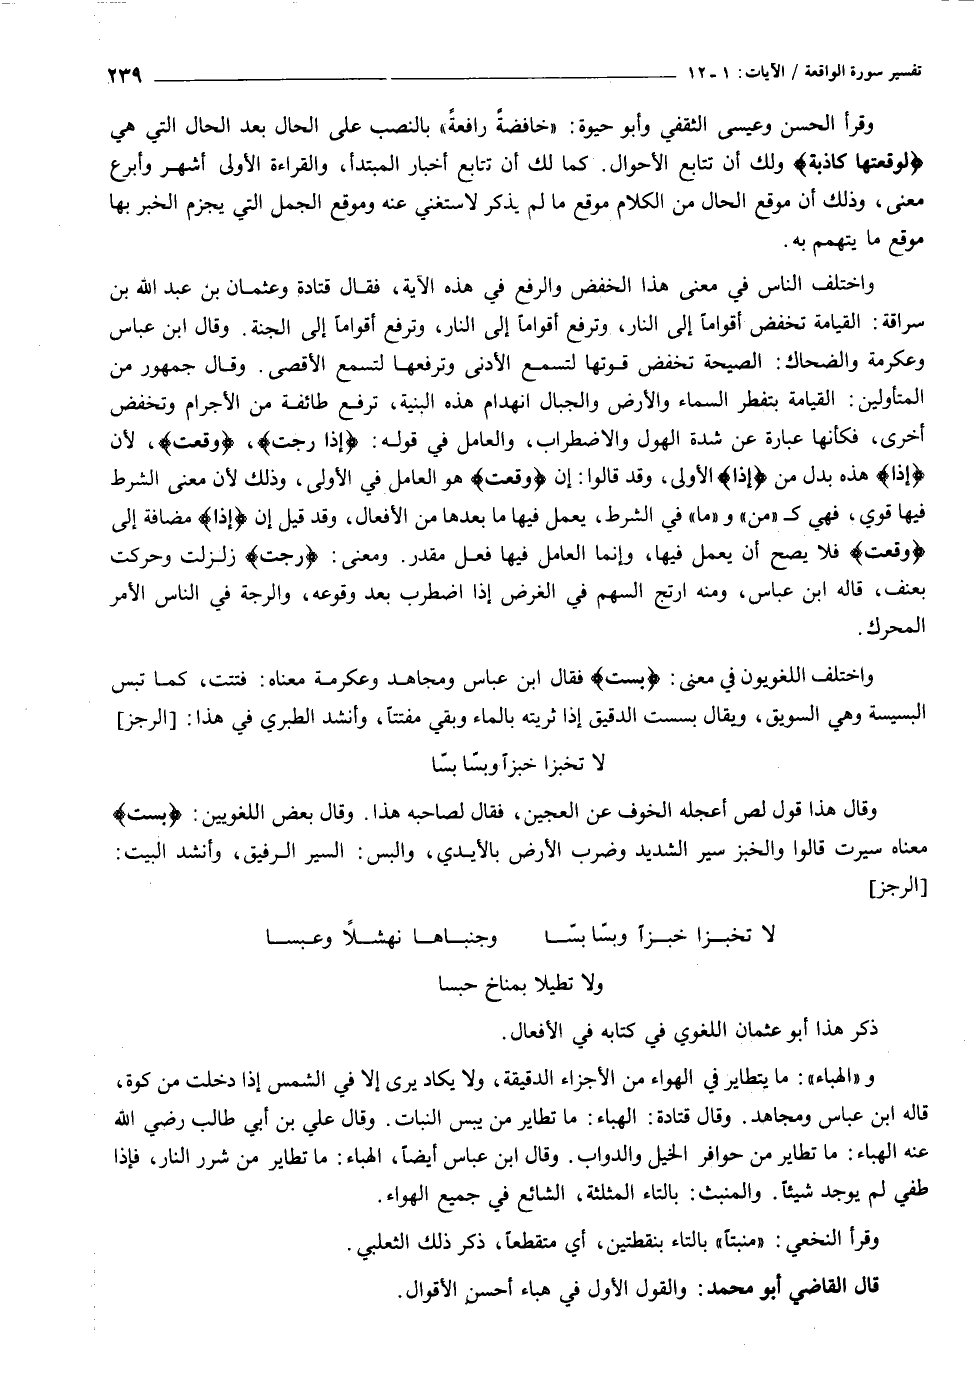 تفسير سورة الواقعة / الآيات: ١ - ١٢
٢٣٩
وقرأ الحسن وعيسى الثقفي وأبو حيوة: «خافضةً رافعةً» بالنصب على الحال بعد الحال التي هي
﴿لوقعتها كاذبة﴾ ولك أن تتابع الأحوال. كما لك أن تتابع أخبار المبتدأ، والقراءة الأولى أشهر وأبرع
معنى، وذلك أن موقع الحال من الكلام موقع ما لم يذكر لاستغني عنه وموقع الجمل التي يجزم الخبر بها
موقع ما يتهمم به.
واختلف الناس في معنى هذا الخفض والرفع في هذه الآية، فقال قتادة وعثمان بن عبد الله بن
سراقة: القيامة تخفض أقواماً إلى النار، وترفع أقواماً إلى النار، وترفع أقواماً إلى الجنة. وقال ابن عباس
وعكرمة والضحاك: الصيحة تخفض قوتها لتسمع الأدنى وترفعها لتسمع الأقصى. وقال جمهور من
المتأولين: القيامة بتفطر السماء والأرض والجبال انهدام هذه البنية، ترفع طائفة من الأجرام وتخفض
أخرى، فكأنها عبارة عن شدة الهول والاضطراب، والعامل في قوله: ﴿إذا رجت﴾، ﴿وقعت﴾، لأن
﴿إذا﴾ هذه بدل من ﴿إذا﴾ الأولى، وقد قالوا: إن ﴿وقعت﴾ هو العامل في الأولى، وذلك لأن معنى الشرط
فيها قوي، فهي كـ «من» و «ما» في الشرط، يعمل فيها ما بعدها من الأفعال، وقد قيل إن ﴿إذا﴾ مضافة إلى
﴿وقعت﴾ فلا يصح أن يعمل فيها، وإنما العامل فيها فعل مقدر. ومعنى: ﴿رجت﴾ زلزلت وحركت
بعنف، قاله ابن عباس، ومنه ارتج السهم في الغرض إذا اضطرب بعد وقوعه، والرجة في الناس الأمر
المحرك.
واختلف اللغويون في معنى: ﴿بست﴾ فقال ابن عباس ومجاهد وعكرمة معناه: فتتت، كما تبس
البسيسة وهي السويق، ويقال بسست الدقيق إذا ثريته بالماء وبقي مفتتاً، وأنشد الطبري في هذا: [الرجز]
لا تخبزا خبزاً وبسّا بسّا
وقال هذا قول لص أعجله الخوف عن العجين، فقال لصاحبه هذا. وقال بعض اللغويين: ﴿بست﴾
معناه سيرت قالوا والخبز سير الشديد وضرب الأرض بالأيدي، والبس: السير الرفيق، وأنشد البيت:
[الرجز]
لا تخبزا خبزاً وبسّا بسّا وجنباها نهشلًا وعبسا
ولا تطيلا بمناخ حبسا
ذكر هذا أبو عثمان اللغوي في كتابه في الأفعال.
و «الهباء»: ما يتطاير في الهواء من الأجزاء الدقيقة، ولا يكاد يرى إلا في الشمس إذا دخلت من كوة،
قاله ابن عباس ومجاهد. وقال قتادة: الهباء: ما تطاير من يبس النبات. وقال علي بن أبي طالب رضي الله
عنه الهباء: ما تطاير من حوافر الخيل والدواب. وقال ابن عباس أيضاً، الهباء: ما تطاير من شرر النار، فإذا
طفي لم يوجد شيئاً. والمنبث: بالتاء المثلثة، الشائع في جميع الهواء.
وقرأ النخعي: «منبتاً» بالتاء بنقطتين، أي متقطعاً، ذكر ذلك الثعلبي.
قال القاضي أبو محمد: والقول الأول في هباء أحسن الأقوال.